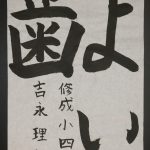 よい
歯
修成小四
吉永理